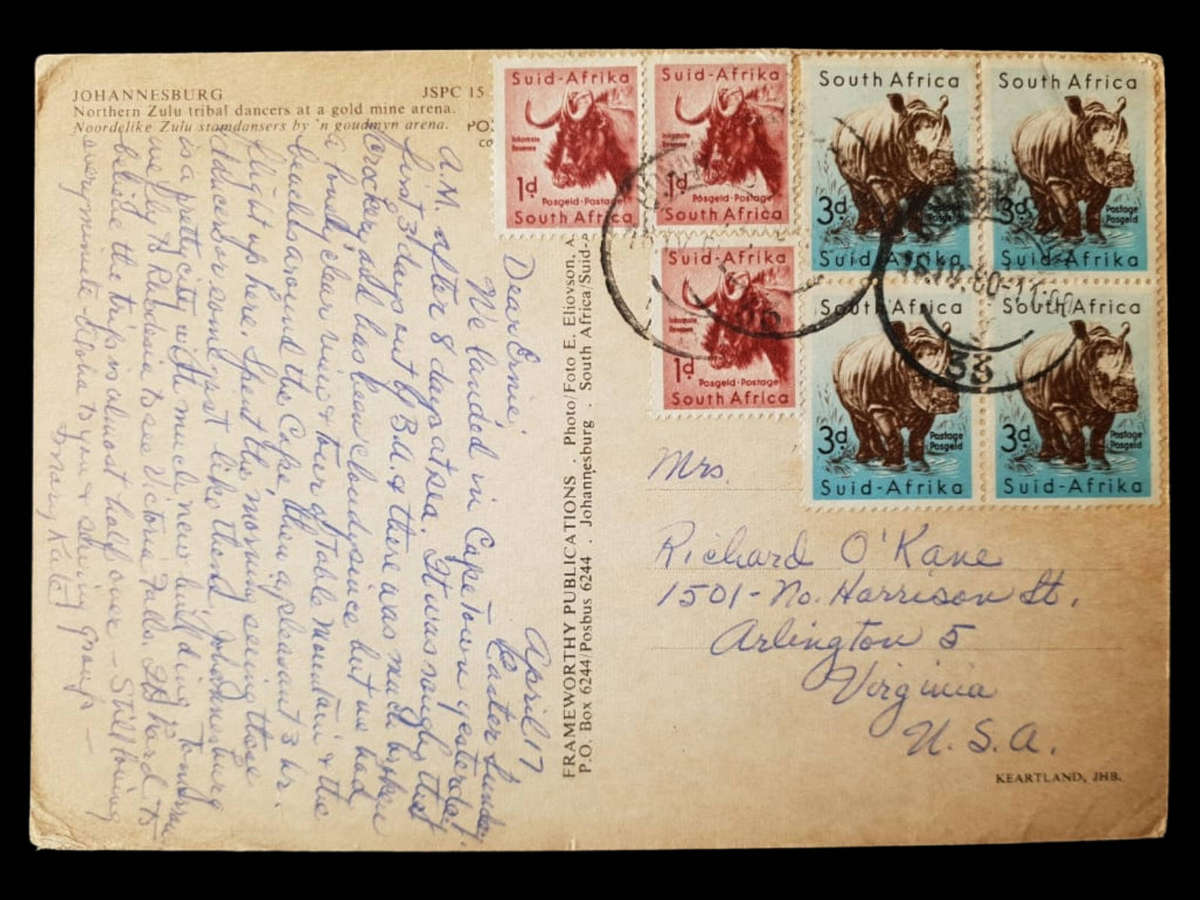 JOHANNESBURG JSPC 15
Northern Zulu tribal dancers at a gold mine arena.
Noordelike Zulu stamdansers by 'n goudmyn arena.
April 17
Easter Sunday
Dear Ernie,
We landed in Cape Town yesterday
A.M. after 8 days at sea. It was rough the
first 3 days out of B.A. & there was much broken
crockery, all has been cloudy since but we had
a lovely clear view & tour of Table Mountain & the
beaches around the Cape then a pleasant 3 hr.
flight up here. Spent the morning seeing these
dancers or some just like them. Johannesburg
is a pretty city with much new building. Tomorrow
we fly to Rhodesia to see Victoria Falls. It's hard to
believe the trip is almost half over - Still loving
every minute - to you & sewing group -
Mary Kate
FRAMEWORTHY PUBLICATIONS . Photo/Foto E. Eliovson, A.
P.O. Box 6244/Posbus 6244 . Johannesburg . South Africa/Suid-A
Suid-Afrika
Inkomste
Revenue
1d
Posgeld·Postage
South Africa
Suid-Afrika
Inkomste
Revenue
1d
Posgeld·Postage
South Africa
Suid-Afrika
Inkomste
Revenue
1d
Posgeld·Postage
South Africa
South Africa
3d
Postage
Posgeld
Suid-Afrika
South Africa
3d
Postage
Posgeld
Suid-Afrika
South Africa
3d
Postage
Posgeld
Suid-Afrika
South Africa
3d
Postage
Posgeld
Suid-Afrika
60-11
33
Mrs.
Richard O'Kane
1501-No. Harrison St.
Arlington 5
Virginia
U.S.A.
KEARTLAND, JHB.